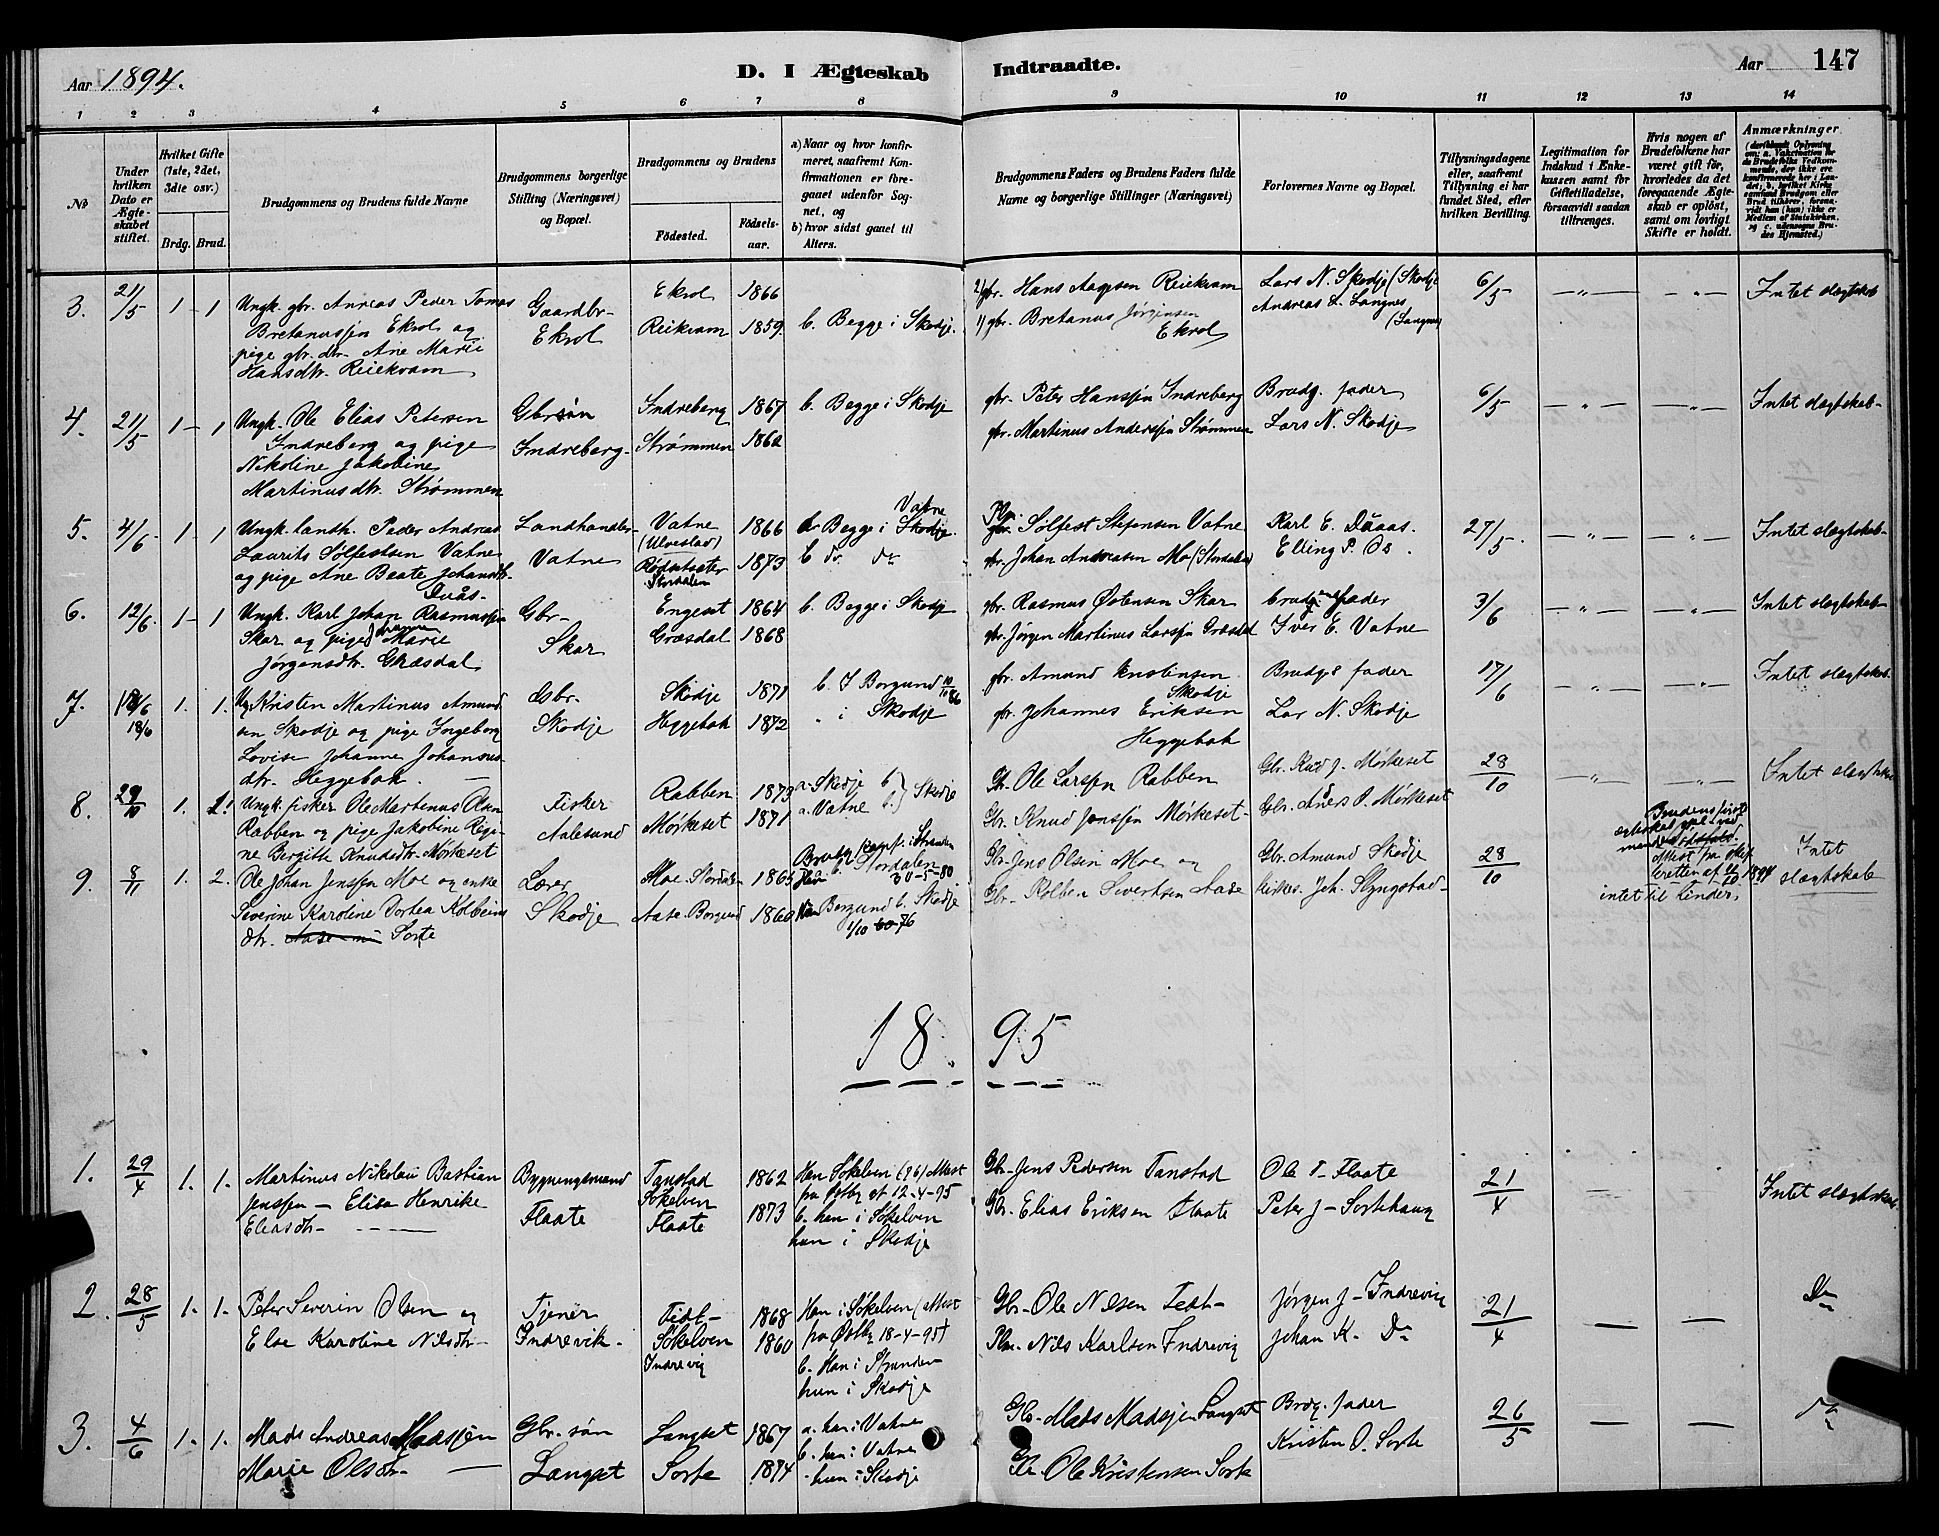 Aar 1894.
D. I Ægteskab Indtraadte.
Aar 147
1 2 3 4 5 6 7 8 9 10 11 12 13 14
No
Under hvilken Dato er Ægteskabet stiftet.
Hvilket Gifte (1ste, 2det, 3die osv.)
Brdg. Brud.
Brudgommens og Brudens fulde Navne
Brudgommens borgerlige Stilling (Næringsvei) og Bopæl.
Brudgommens og Brudens
Fødested. Fødselsaar.
a) Naar og hvor konfirmeret, saafremt Konfirmationen er foregaaet udenfor Sognet, og
b) hvor sidst gaaet til Alters.
Brudgommens Faders og Brudens Faders fulde Navne og borgerlige Stillinger (Næringsvei)
Forlovernes Navne og Bopæl.
Tillysningsdagene eller, saafremt Tillysning ei har fundet Sted, efter hvilken Bevilling.
Legitimation for Indskud i Enkekassen samt for Giftetilladelse, forsaavidt saadan tiltrænges.
Hvis nogen af Brudefolkene har været gift før, hvorledes da det foregaaende Ægteskab er opløst, samt om lovligt Skifte er holdt.
Anmærkninger
3. 21/5 1 - 1 Ungk. gbr. Anreas Peder Tomas Gaardbr- Ekrol 1866 b. Begge i Skodje. 2) gbr. Hans Aagesen Reiekvam Lars N. Skodje (Skodje 6/5 Intet slægtskab
Bretanussøn Ekrol og Ekrol Reikvam 1859. 1) gbr. Bretanus Jørgensen Andreas L. Langnes
pige gbr. dtr. Ane Marie Ekrol (Langnes
Hansdtr. Reiekvam
4. 21/5 1 - 1 Ungk. Ole Elias Petersen Gbrsøn Indreberg 1867 b. Begge i Skodje gbr. Peter Hanssøn Indreberg Brudg. fader 6/5 Intet slægtskab-
Indreberg og pige Indreberg- Strømmen 1862 gbr. Martinus Anderssøn Strømmen Lars N. Skodje
Nikoline Jakobine
Martinusdtr. Strømmen
5. 4/6 1 - 1 Ungk. landh. Peder Andreas Landhandler- Vatne 1866 b Begge i Skodje. Vatne gbr. Sølfest Stefensen Vatne Karl E. Duaas. 27/5. Intet slægtskab-
Laurits Sølfestsen Vatne Vatne (Ulvestad) gbr. Johan Andreasen Mo (Stordalen) Elling P. Os.
og pige Ane Beate Johandtr. Rødsætseter 1873 b do do
Duås- Stordalen
6. 12/6 1 - 1 Ungk. Karl Johan Rasmussøn Gbr- Engeset 1864 b. Begge i Skodje gbr. Rasmus Østensen Skar brudg. fader 3/6 Intet slægtskab
Skar og pige Marie Skar Græsdal 1868 gbr. Jørgen Martinus Larssøn Græsdal Iver E. Vatne
Jørgensdtr. Græsdal
7. 18/6 1. 1. Kristen Martinus Amund Gbr. Skodje 1871 b. I Borgund 10/11 86 gbr. Amund Kristensen Brudgs fader 17/6 Intet slægtskab.
18/6 sen Skodje og pige Ingeborg Skodje Heggebak 1872 " i Skodje Skodje
Lovise Johanne Johannes gbr. Johannes Eriksen Lar N. Skodje
dtr. Heggebak. Heggebak
8. 29/10 1. 1. Ungk. fisker Ole Martinus Olsen Fisker Rabben 1873 a. Skodje b } Skodje Gbr. Ole Larssøn Rabben Gbr. Knud J. Mørkeset 28/10 Intet slægtskab
Rabben og pige Jakobine Regi- Aalesund Mørkeset 1871 a. Vatne b. Gbr. Knud Jonssøn Mørkeset- Gbr. Anders O. Mørkeset
ne Bergitte Knudsdtr. Mørkeset
9. 8/11 1. 2. Ole Johan Jenssøn Moe og enke Lærer Moe. Stordalen 1865 Brudg. konf. i Stranden Gbr. Jens Olsen Moe og Gbr. Amund Skodje 28/10 Intet slægtskab
Severine Karoline Dortea Kolbeins Skodje Aase Borgund 1860 b. Stordalen 30-5-80 Gbr. Kolben Sivertsen Aase Kirkes. Joh. Slyngstad-
dtr. Aase Sorte Borgund b. Skodje 1/10 76
Brudens første ægteskab opl. ved mandens død. Attest fra skifteretten af 1894
intet til hinder.
18. 95
1. 29/4 1. 1. Martinus Nikolai Bastian Bygningsmand Tanstad 1862 Han Søkelven (76) Attest Gbr. Jens Pedersen Tanstad Ole T- Flaate 21/4 Intet slægtskab.
Jenssøn - Elisa Henrike Flaate Søkelven fra Østby at 12-4-95 Gbr. Elias Eriksen Flaate Peter J- Sortehaug
Eliasdtr- Flaate 1873 b. han i Søkelven
hun i Skodje
2. 28/5 1. 1. Peter Severin Olsen og Tjener Tedt- 1868 Han i Søkelven (Attest Gbr. Ole Nilsen Tedt- Jørgen J- Indrevig 21/4 Do
Else Karoline Nilsdtr- Indrevik. Søkelven 1860 fra Østby 18-4-95) Nils Karlsen Indrevig Johan K. Do
Indrevig b. Han i Stranden
hun i Skodje
3. 4/6 1. 1. Mads Andreas Madssøn Gbr. søn Langset 1867 a. han i Vatne Gbr. Mads Madssøn Langset Brdg. fader 26/5 Do
Marie Olsdtr- Langset Sorte 1874 b. han i Vatne Gbr Ole Kristensen Sorte Kristen O. Sorte
- hun i Skodje